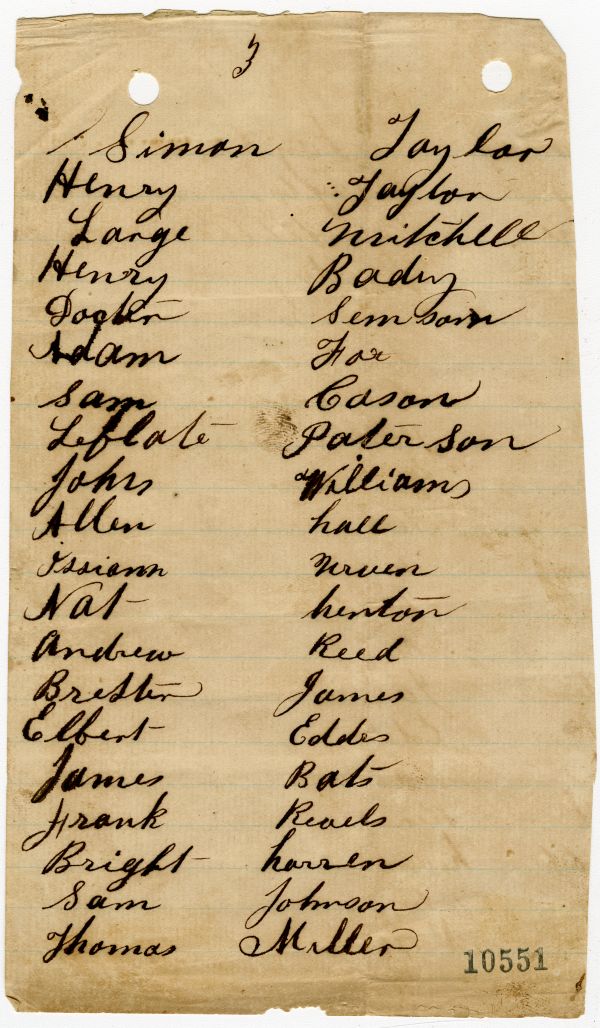 3
Simon Taylor
Henry Taylor
Large Mitchell
Henry Badey
Docter Semsom
Adam Fox
Sam Cason
Leflate Paterson
Johns Williams
Allen hall
Ossiann
Nat henton
Andrew Reed
Brester James
Elbert Eddes
James Bats
Frank Revels
Bright harren
Sam Johnson
Thomas Miller
10551